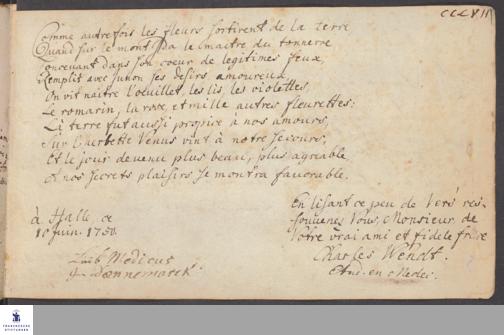 CCLVII
Comme autrefois les fleurs sortirent de la terre
Quand sur le mont Ida le maitre du tonnerre
Concevant dans son coeur de legitimes feux,
Remplit avec Junon ses desirs amoureux,
On vit naitre l'oeuillet, les lis, les violettes,
Le romarin, la rose, et mille autres fleurettes:
La terre fut aussi propice à nos amours,
Sur l'herbette Venus vint à notre secours,
Et le jour devenu plus beau, plus agreable
A nos secrets plaisirs se montra favorable.
à Halle ce
10 Juin. 1750.
En lisant ce peu de Vers res-
souvenes Vous, Monsieur, de
Votre vrai ami et fidele frere
Charles Wendt.
Etud. en Medec.
Medicus
FRANCKESCHE
STIFTUNGEN